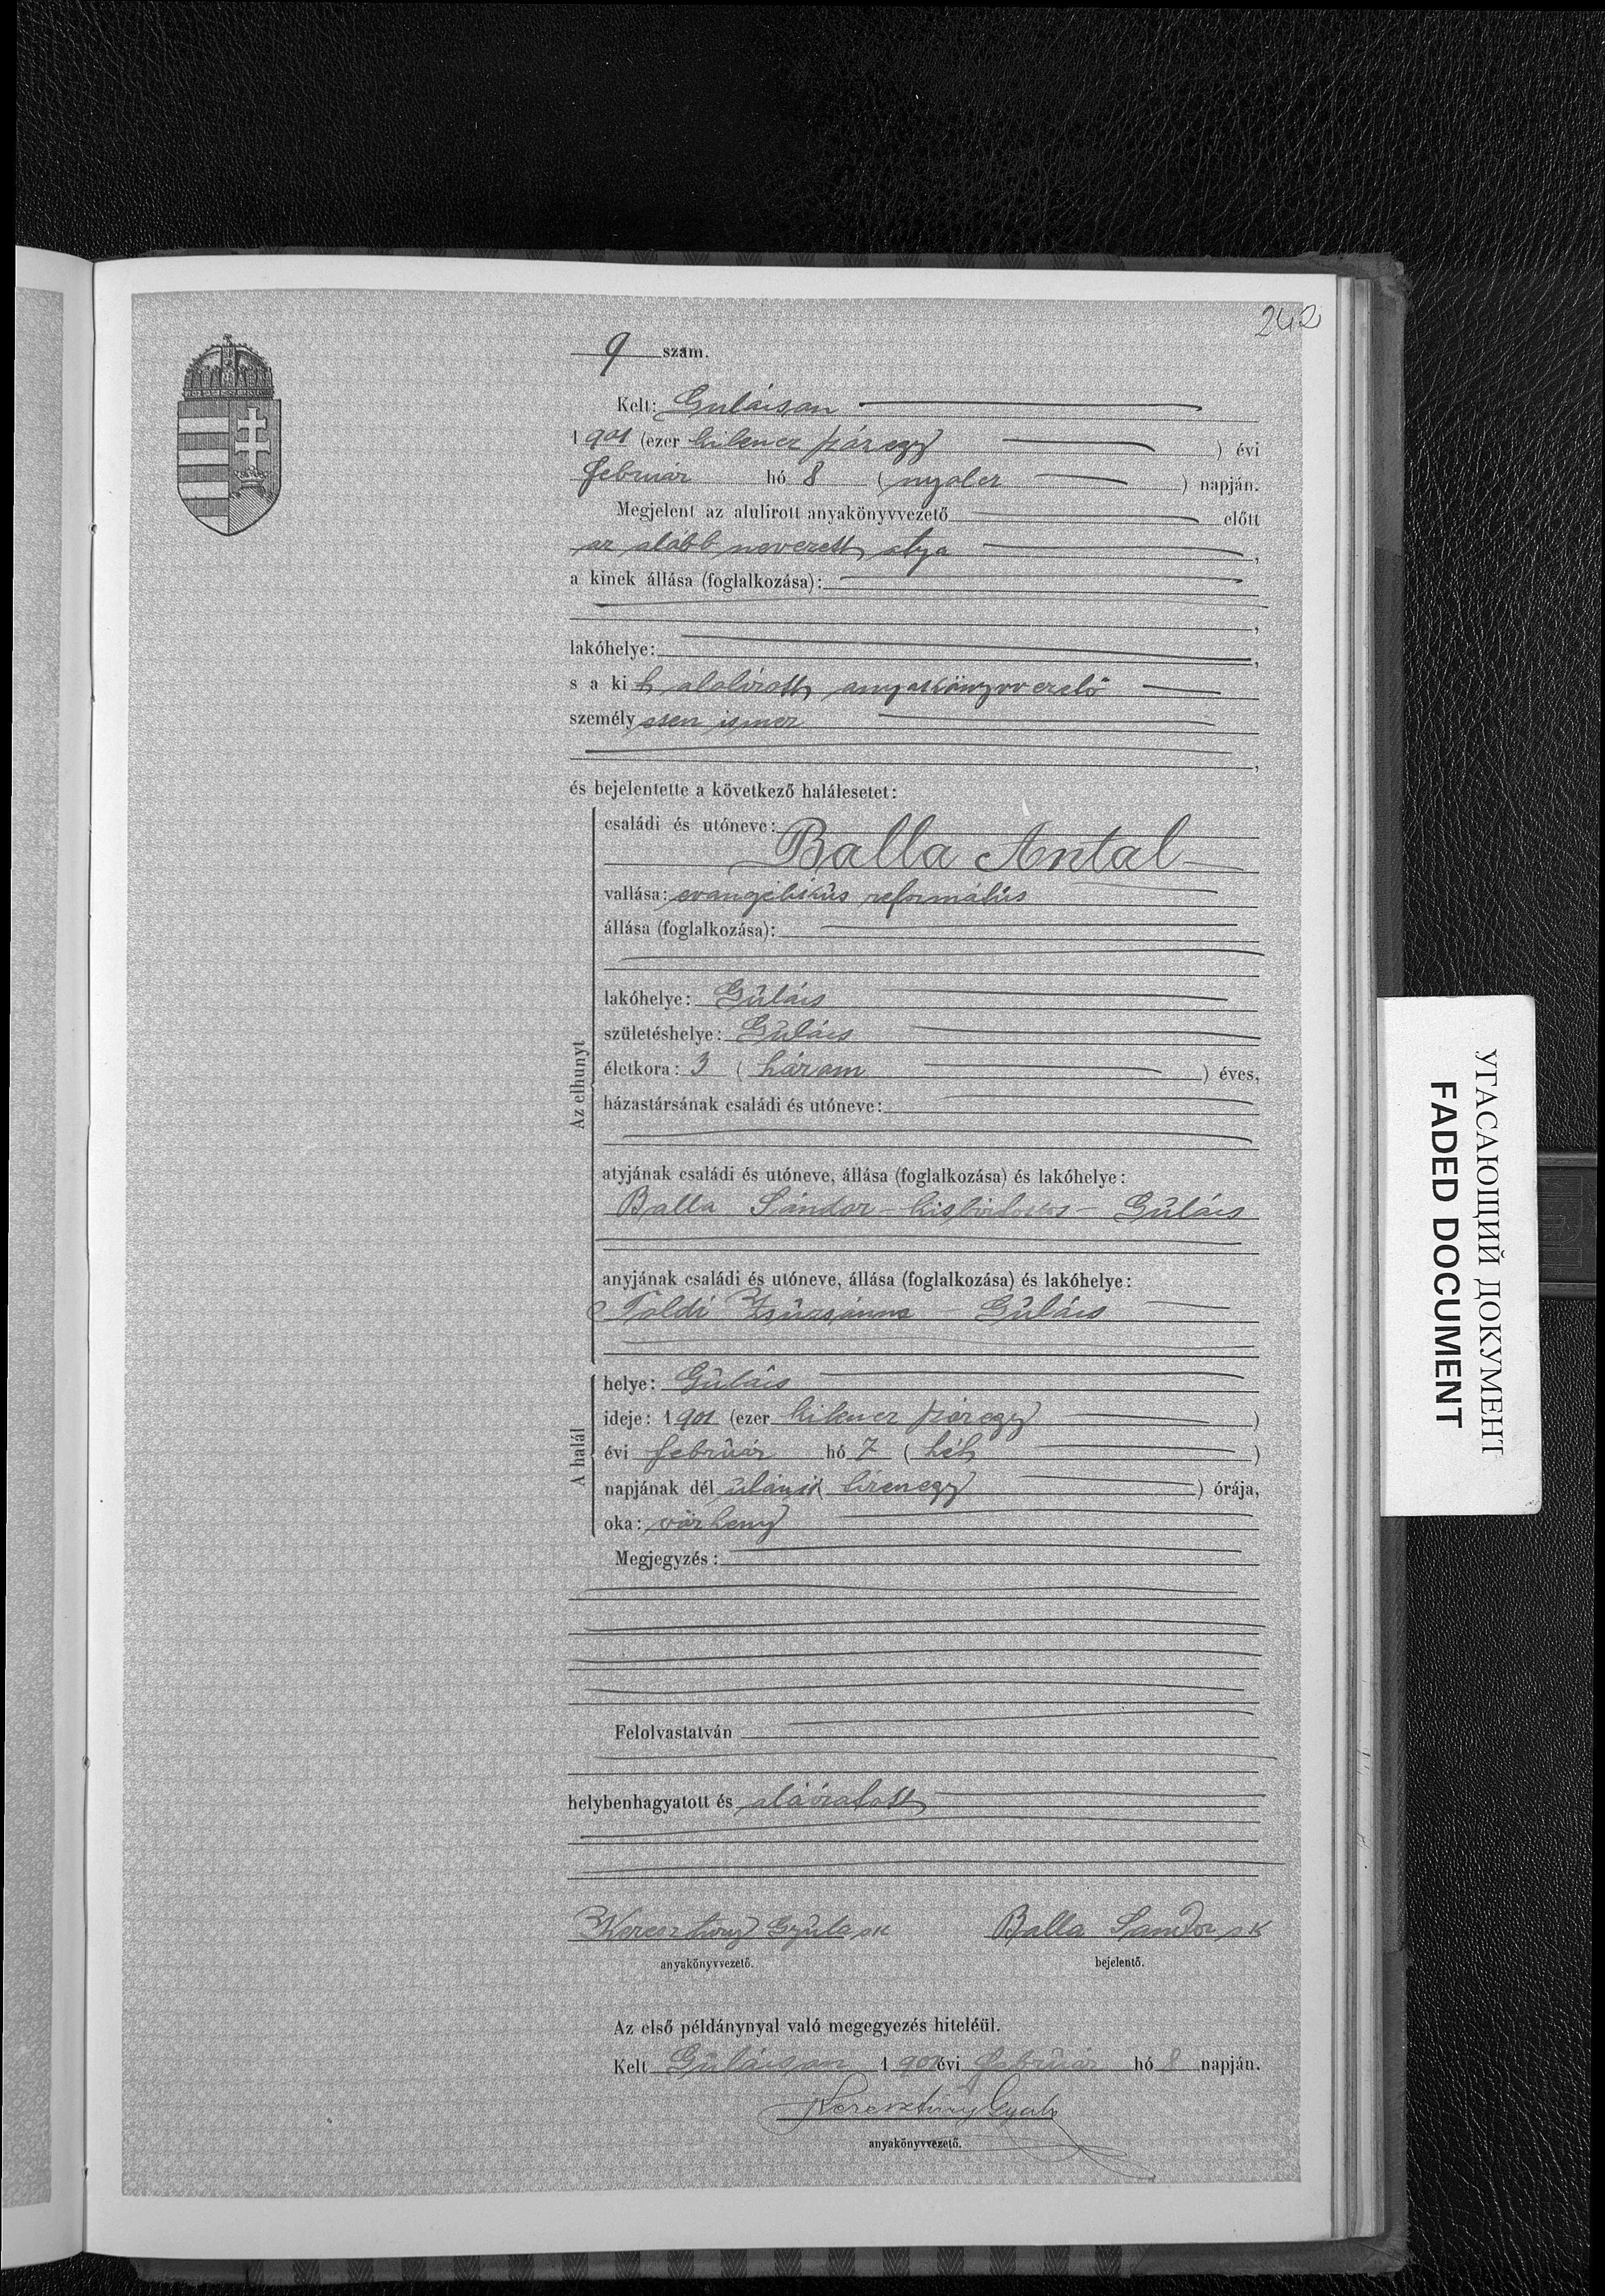 242
9 szám.
Kelt: Guláison
1901 (ezer kilencz száregy) évi
február hó 8 (nyolcz) napján.
Megjelent az alulirott anyakönyvvezető előtt
az alább nevezett atya,
a kinek állása (foglalkozása):
,
lakóhelye: ,
s a kit alolirott anyakönyvvezető
személyesen ismer
,
és bejelentette a következő halálesetet:
családi és utóneve:
Balla Antal
vallása: evangelikus református
állása (foglalkozása):
lakóhelye: Gulács
születéshelye: Gulács
életkora: 3 (három) éves,
házastársának családi és utóneve:
Az elhunyt
atyjának családi és utóneve, állása (foglalkozása) és lakóhelye:
Balla Sándor - kisbirtokos - Gulács
anyjának családi és utóneve, állása (foglalkozása) és lakóhelye:
Toldi Zsuzsánna Gulács
helye: Gulács
ideje: 1901 (ezer kilencz száregy)
évi február hó 7 (hét)
A halál
napjának dél utáni (tizenegy) órája,
oka: vörheny
Megjegyzés:
Felolvastatván
helybenhagyatott és aláiratott
Keresztury Gyula sk
anyakönyvvezető.
Balla Sandor sk
bejelentő.
Az első példánynyal való megegyezés hiteléül.
Kelt Gulácson 1901 évi február hó 8 napján.
Keresztury Gyula
anyakönyvvezető.
УГАСАЮЩИЙ ДОКУМЕНТ
FADED DOCUMENT